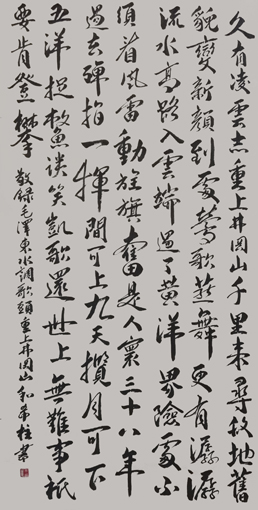 久有凌雲志重上井岡山千里來尋故地舊
貌變新顏到處鶯歌燕舞更有潺潺
流水高路入雲端過了黃洋界險處不
須看風雷動旌旗奮是人寰三十八年
過去彈指一揮間可上九天攬月可下
五洋捉鱉談笑凱歌還世上無難事祇
要肯登攀 敬錄毛澤東水調歌頭重上井岡山 書